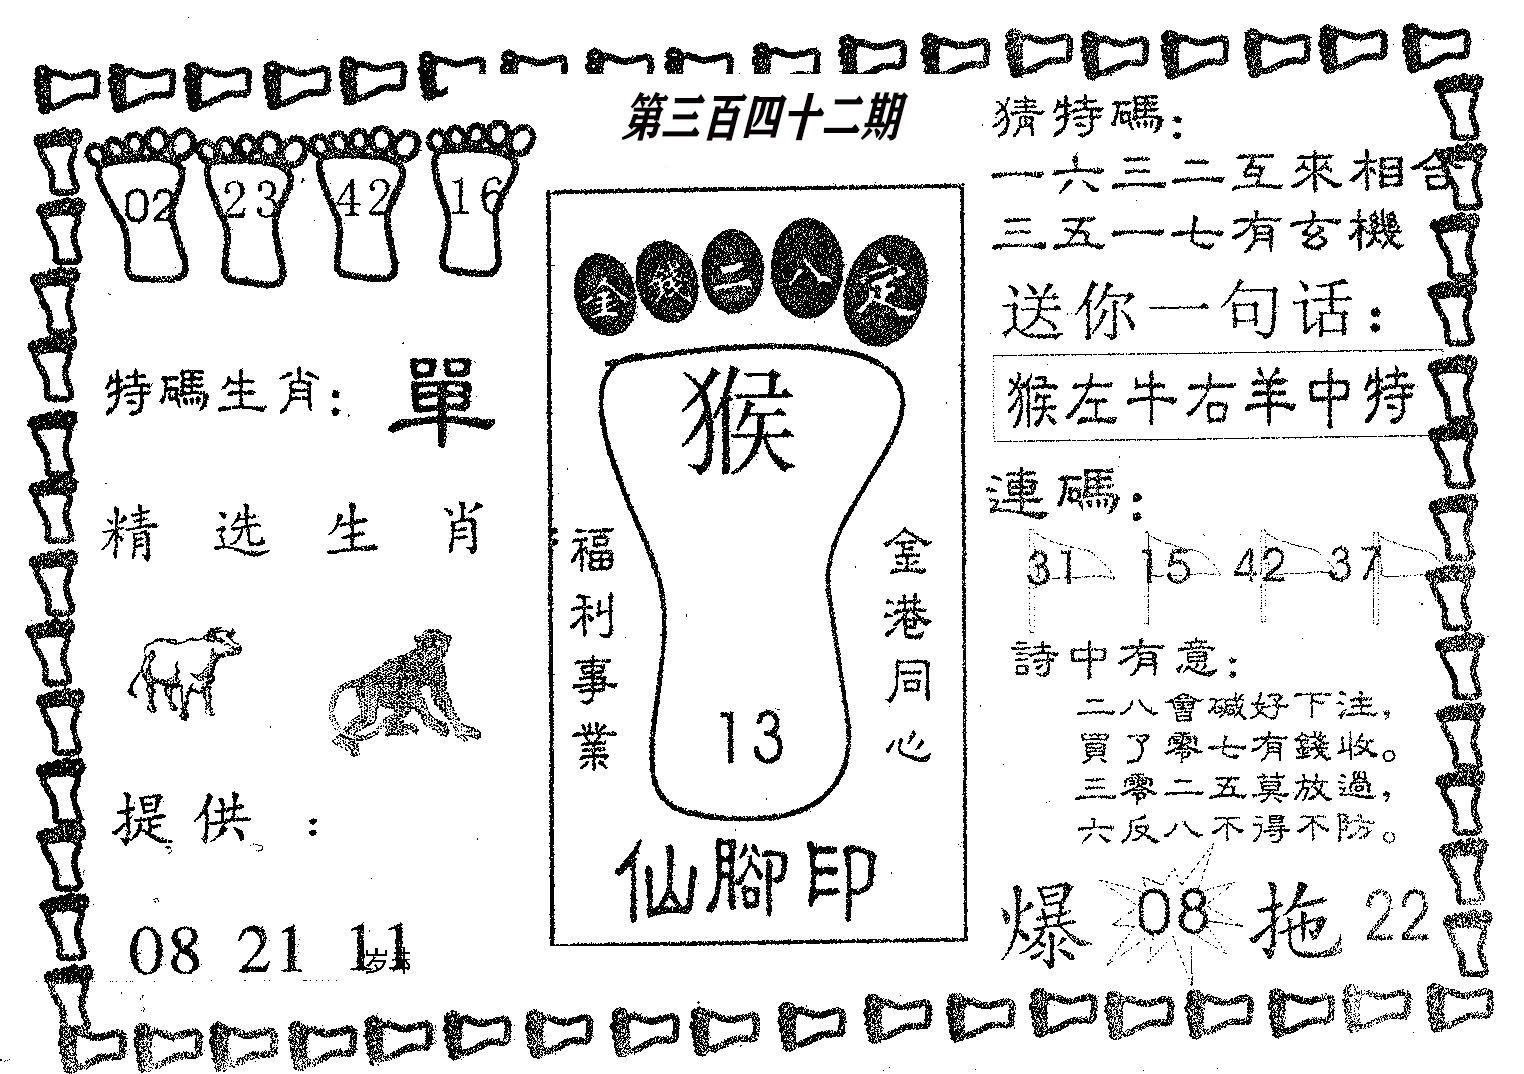 第三百四十二期
02 23 42 16
特碼生肖：單
精选生肖：
提供：
08 21 11
金發二八定
猴
福利事業
金港同心
13
仙腳印
猜特碼：
一六三二互來相合
三五一七有玄機
送你一句话：
猴左牛右羊中特
連碼：
31 15 42 37
詩中有意：
二八會碱好下注，
買了零七有錢收。
三零二五莫放過，
六反八不得不防。
爆 08 拖 22